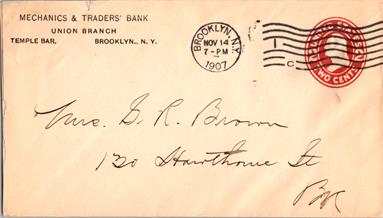 MECHANICS & TRADERS' BANK
UNION BRANCH
TEMPLE BAR, BROOKLYN., N. Y.
BROOKLYN, N.Y.
NOV 14
7-PM
1907
1
C
TWO CENTS
Mrs. G. R. Brown
130 Hawthorne St